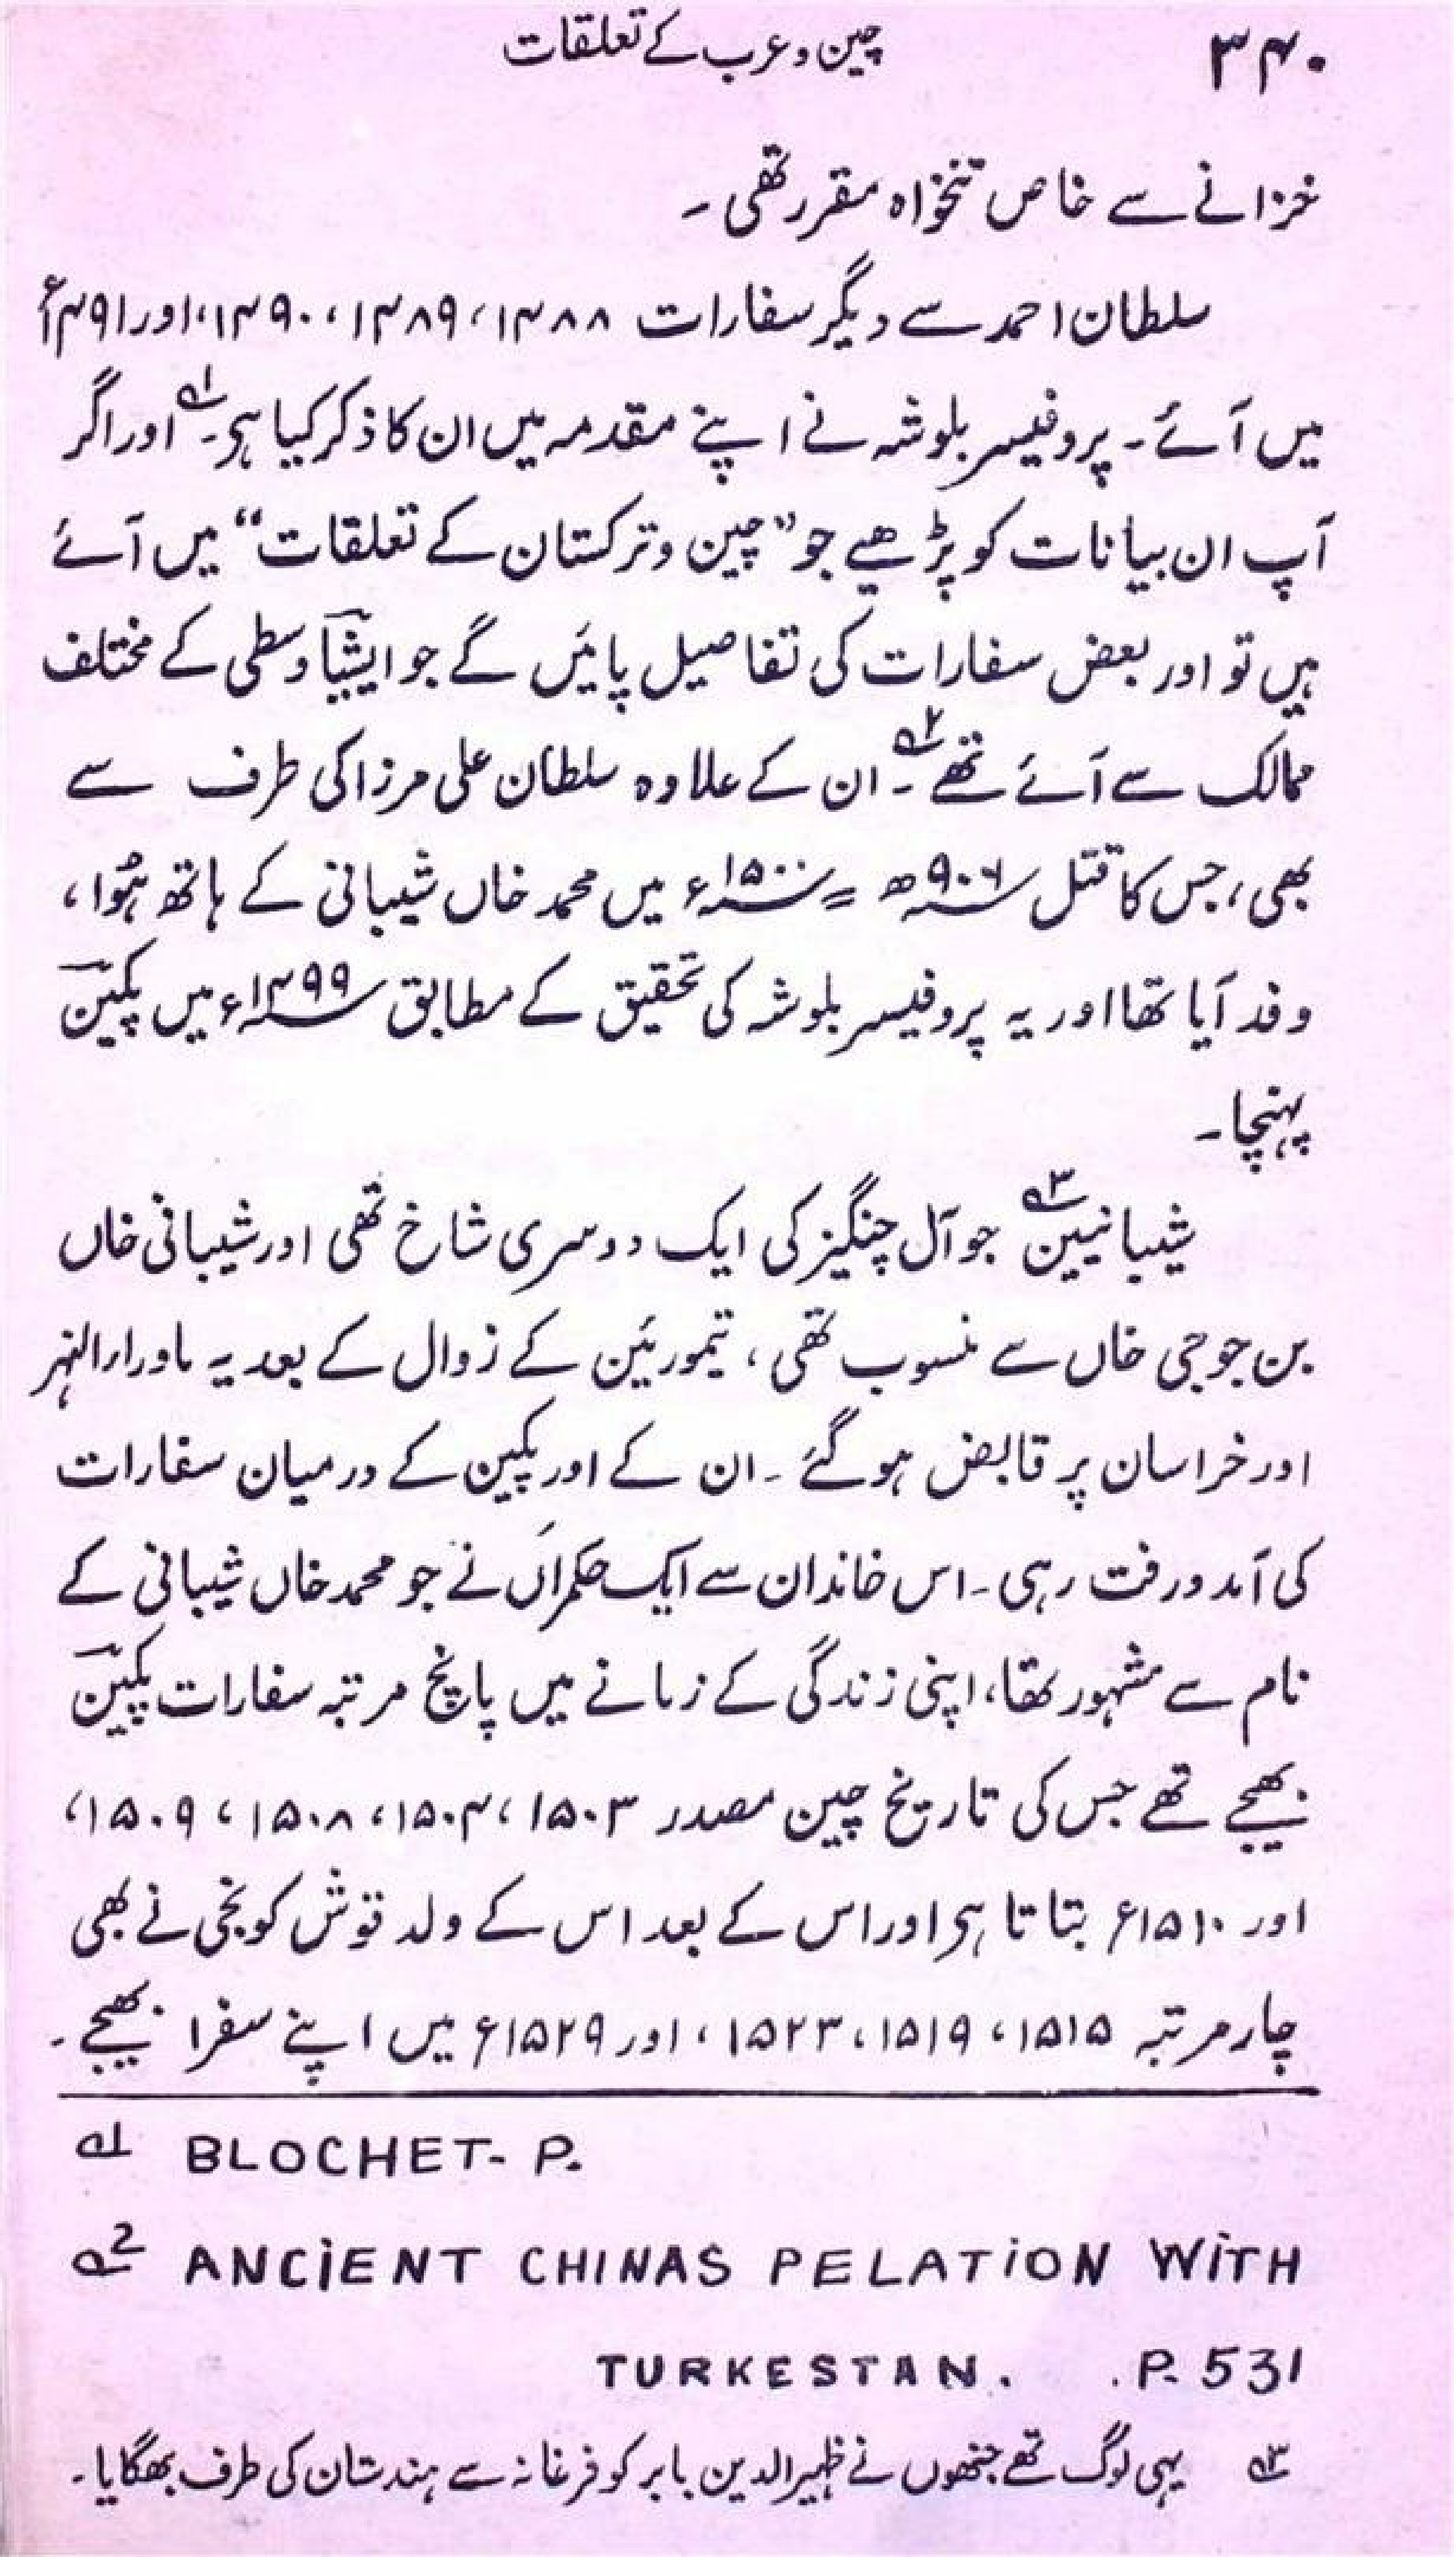 ۳۴۰
چین و عرب کے تعلقات
خزانے سے خاص تنخواہ مقرر تھی ۔
سلطان احمد سے دیگر سفارات ۱۴۸۸، ۱۴۸۹، ۱۴۹۰، اور ۱۴۹۱ء
میں آئے ۔ پروفیسر بلوشہ نے اپنے مقدمہ میں ان کا ذکر کیا ہی۔ ؎۱ اور اگر
آپ ان بیانات کو پڑھیے جو ”چین و ترکستان کے تعلقات“ میں آئے
ہیں تو اور بعض سفارات کی تفاصیل پائیں گے جو ایشیا وسطی کے مختلف
ممالک سے آئے تھے ۔ ؎۲ ان کے علاوہ سلطان علی مرزا کی طرف سے
بھی، جس کا قتل ۹۰۶ھ = ۱۵۰۰ء میں محمد خاں شیبانی کے ہاتھ ہُوا،
وفد آیا تھا اور یہ پروفیسر بلوشہ کی تحقیق کے مطابق ۱۴۹۹ء میں پکین
پہنچا ۔
شیبانیین ؎۳ جو آل چنگیز کی ایک دوسری شاخ تھی اور شیبانی خاں
بن جوجی خاں سے منسوب تھی، تیموریئن کے زوال کے بعد یہ ماورارالنہر
اور خراسان پر قابض ہوگئے ۔ ان کے اور پکین کے درمیان سفارات
کی آمد و رفت رہی ۔ اس خاندان سے ایک حکمراں نے جو محمد خاں شیبانی کے
نام سے مشہور تھا، اپنی زندگی کے زمانے میں پانچ مرتبہ سفارات پکین
بھیجے تھے جس کی تاریخ چین مصدر ۱۵۰۳، ۱۵۰۴، ۱۵۰۸، ۱۵۰۹،
اور ۱۵۱۰ء بتاتا ہی اور اس کے بعد اس کے ولد قوش کونجی نے بھی
چار مرتبہ ۱۵۱۵، ۱۵۱۹، ۱۵۲۳، اور ۱۵۲۹ء میں اپنے سفرا بھیجے ۔
؎1 BLOCHET- P.
؎2 ANCiENT CHINAS PELATiON WiTH
TURKESTAN. .P. 531
؎۳ یہی لوگ تھے جنھوں نے ظہیرالدین بابر کو فرغانہ سے ہندستان کی طرف بھگایا ۔